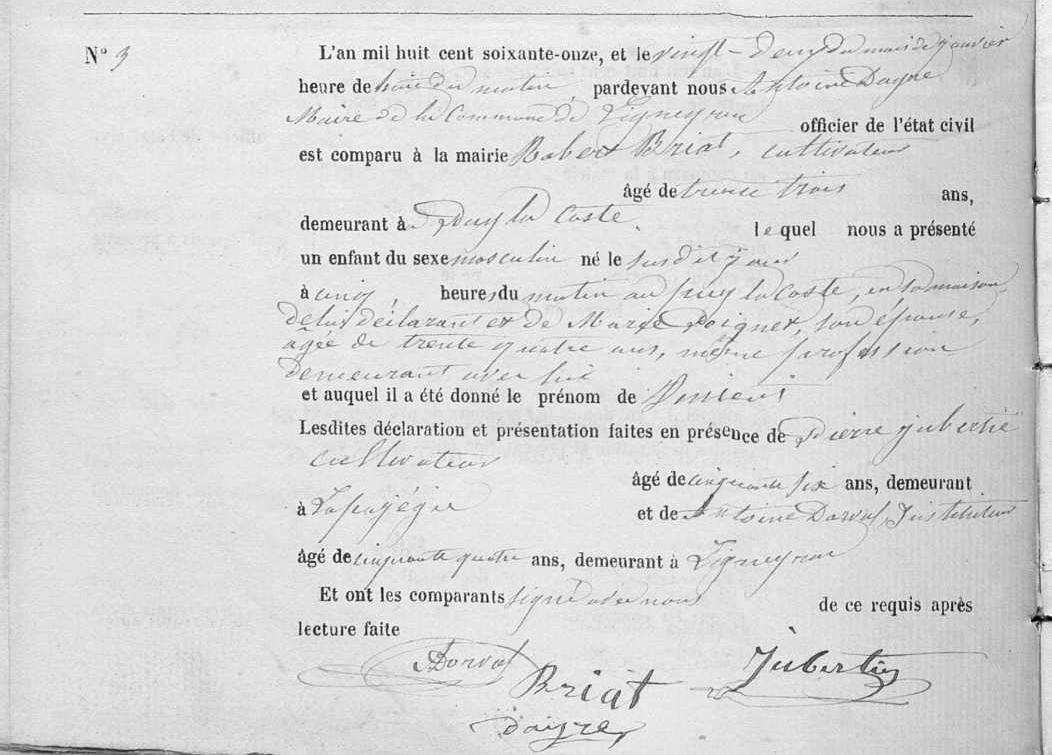 N° 3
L'an mil huit cent soixante-onze, et le vingt-deux du mois de janvier
heure de huit du matin, pardevant nous Antoine Dayre
Maire de la Commune de Ligneyrac officier de l'état civil
est comparu à la mairie Robert Briat, cultivateur
âgé de trente trois ans,
demeurant à Puy la Coste. lequel nous a présenté
un enfant du sexe masculin né le susdit jour
à cinq heures du matin au puy la Coste, en sa maison
de lui déclarant et de Marie Poignet, son épouse,
âgée de trente quatre ans, même profession
demeurant avec lui
et auquel il a été donné le prénom de
Lesdites déclaration et présentation faites en présence de Pierre Jubertie
cultivateur
âgé de cinquante six ans, demeurant
à et de Antoine Dorval, Instituteur
âgé de cinquante quatre ans, demeurant à Ligneyrac
Et ont les comparants signé avec nous de ce requis après
lecture faite
Dorval
Jubertie
Briat
Dayre